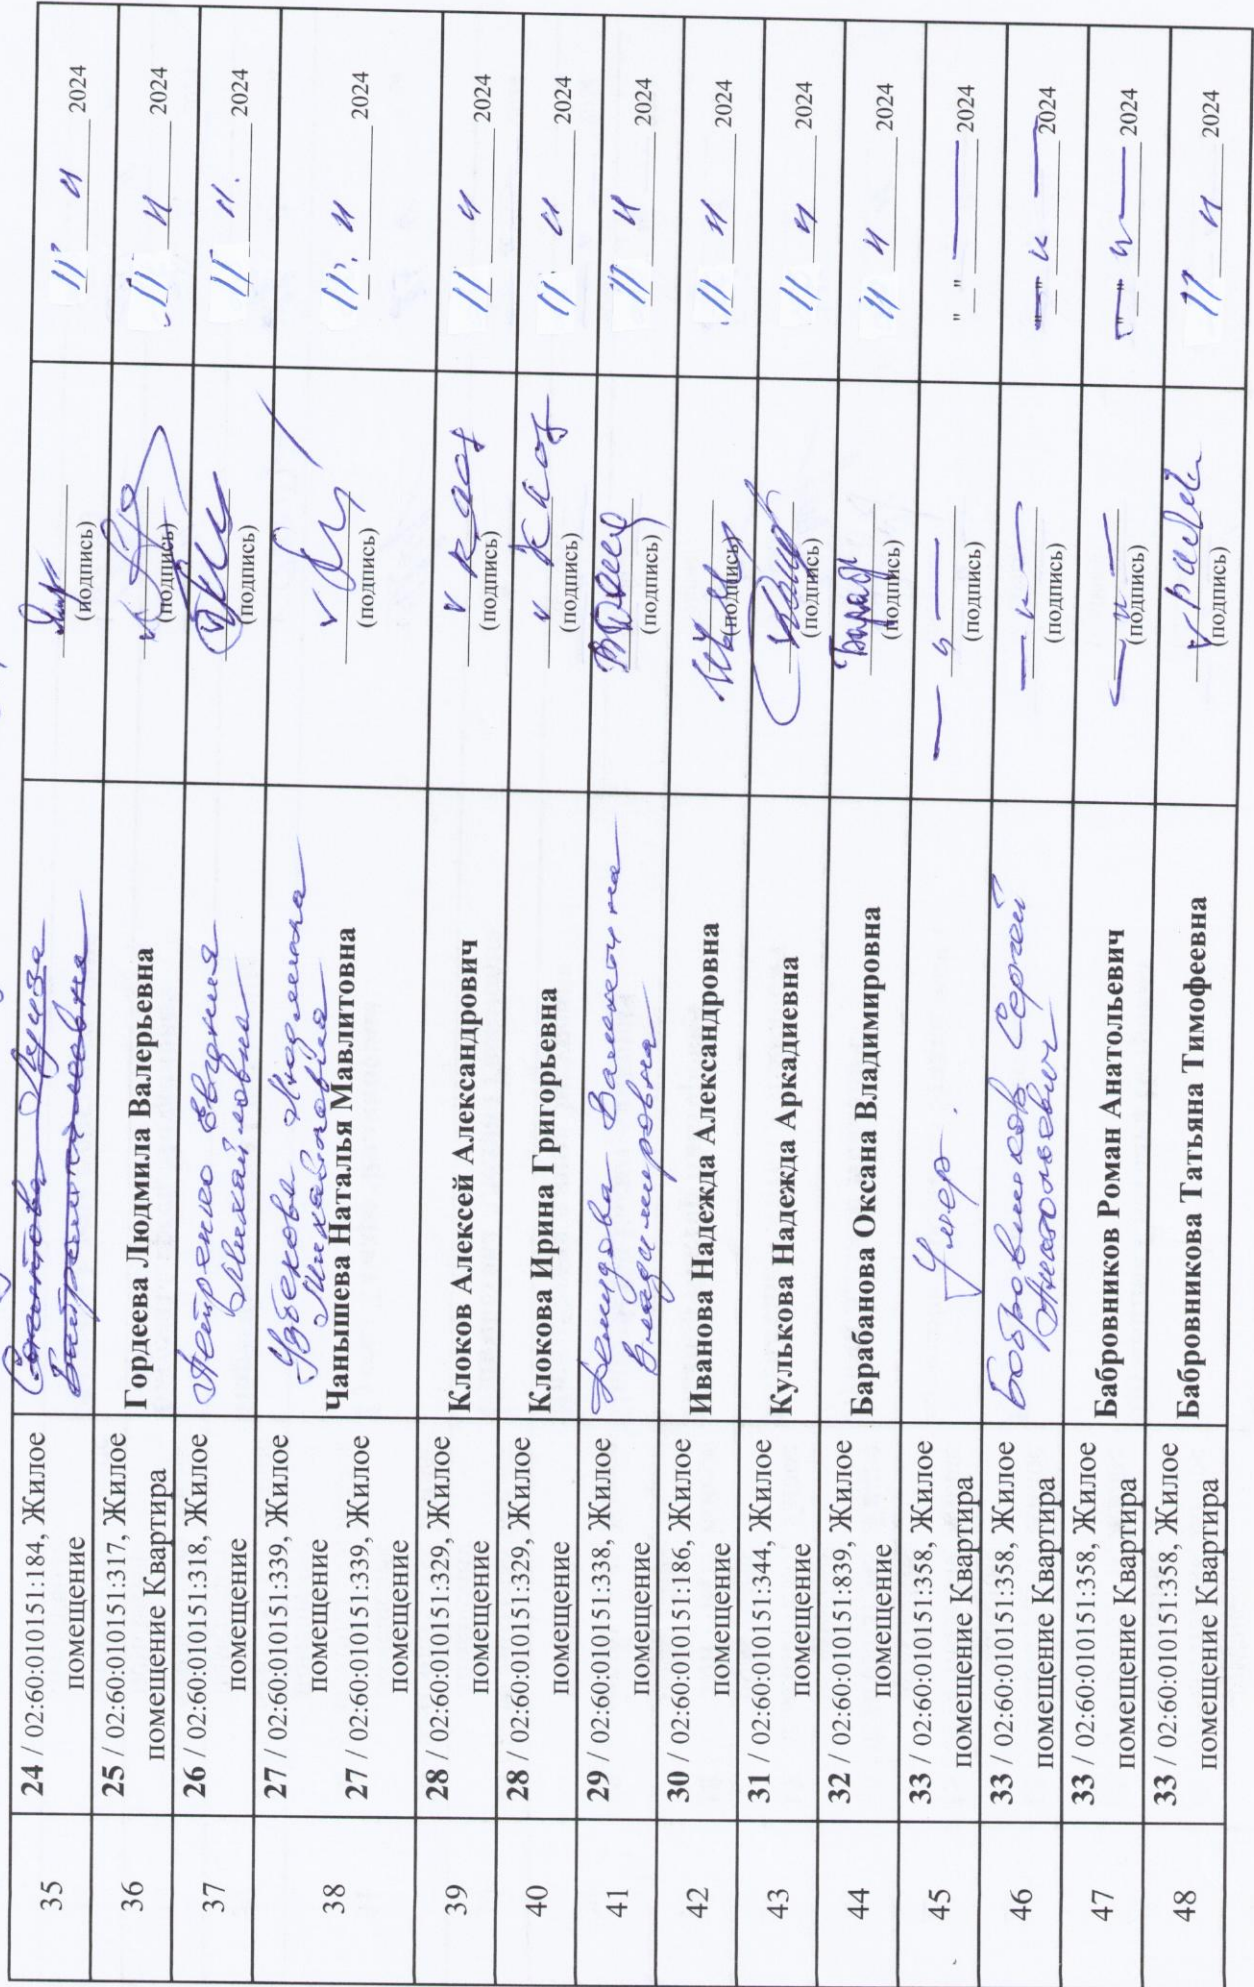 35
24 / 02:60:010151:184, Жилое
помещение
(подпись)
11 2024
36
25 / 02:60:010151:317, Жилое
помещение Квартира
Гордеева Людмила Валерьевна
(подпись)
11 2024
37
26 / 02:60:010151:318, Жилое
помещение
Петренко Евдокия
Михайловна
(подпись)
11 11. 2024
38
27 / 02:60:010151:339, Жилое
помещение
27 / 02:60:010151:339, Жилое
помещение
Узбекова
Чанышева Наталья Мавлитовна
(подпись)
11 2024
39
28 / 02:60:010151:329, Жилое
помещение
Клоков Алексей Александрович
(подпись)
11 2024
40
28 / 02:60:010151:329, Жилое
помещение
Клокова Ирина Григорьевна
(подпись)
11 2024
41
29 / 02:60:010151:338, Жилое
помещение
Демидова Валентина
Владимировна
(подпись)
11 2024
42
30 / 02:60:010151:186, Жилое
помещение
Иванова Надежда Александровна
(подпись)
11 2024
43
31 / 02:60:010151:344, Жилое
помещение
Кулькова Надежда Аркадиевна
(подпись)
11 2024
44
32 / 02:60:010151:839, Жилое
помещение
Барабанова Оксана Владимировна
(подпись)
11 2024
45
33 / 02:60:010151:358, Жилое
помещение Квартира
Умер.
(подпись)
" " 2024
46
33 / 02:60:010151:358, Жилое
помещение Квартира
Бобровников Сергей
Анатольевич
(подпись)
" " 2024
47
33 / 02:60:010151:358, Жилое
помещение Квартира
Бабровников Роман Анатольевич
(подпись)
" " 2024
48
33 / 02:60:010151:358, Жилое
помещение Квартира
Бабровникова Татьяна Тимофеевна
(подпись)
11 2024